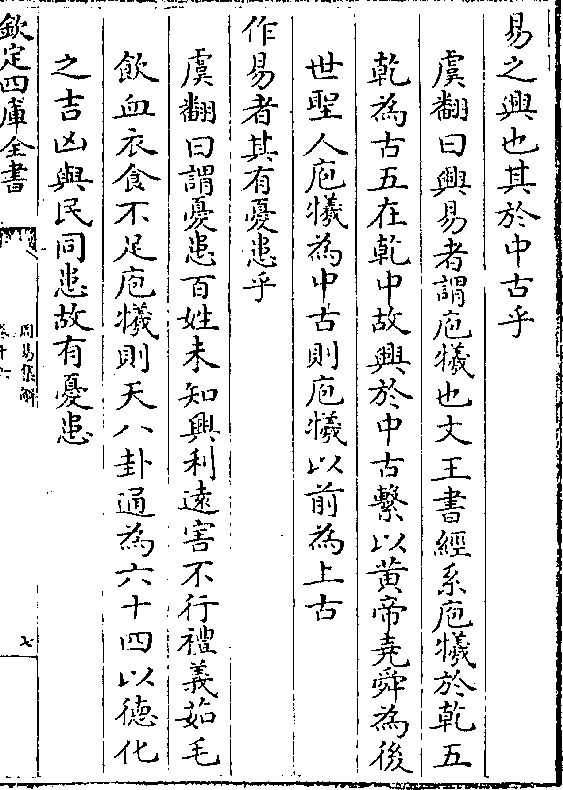 易之興也其於中古乎
虞翻曰興易者謂庖犧也文王書經系庖犧於乾五
乾為古五在乾中故興於中古繫以黄帝堯舜為後
世聖人庖犧為中古則庖犧以前為上古
作易者其有憂患乎
虞翻曰謂憂患百姓未知興利逺害不行禮義茹毛
飲血衣食不足庖犧則天八卦通為六十四以德化
之吉凶與民同患故有憂患
欽定四庫全書
周易集解
七